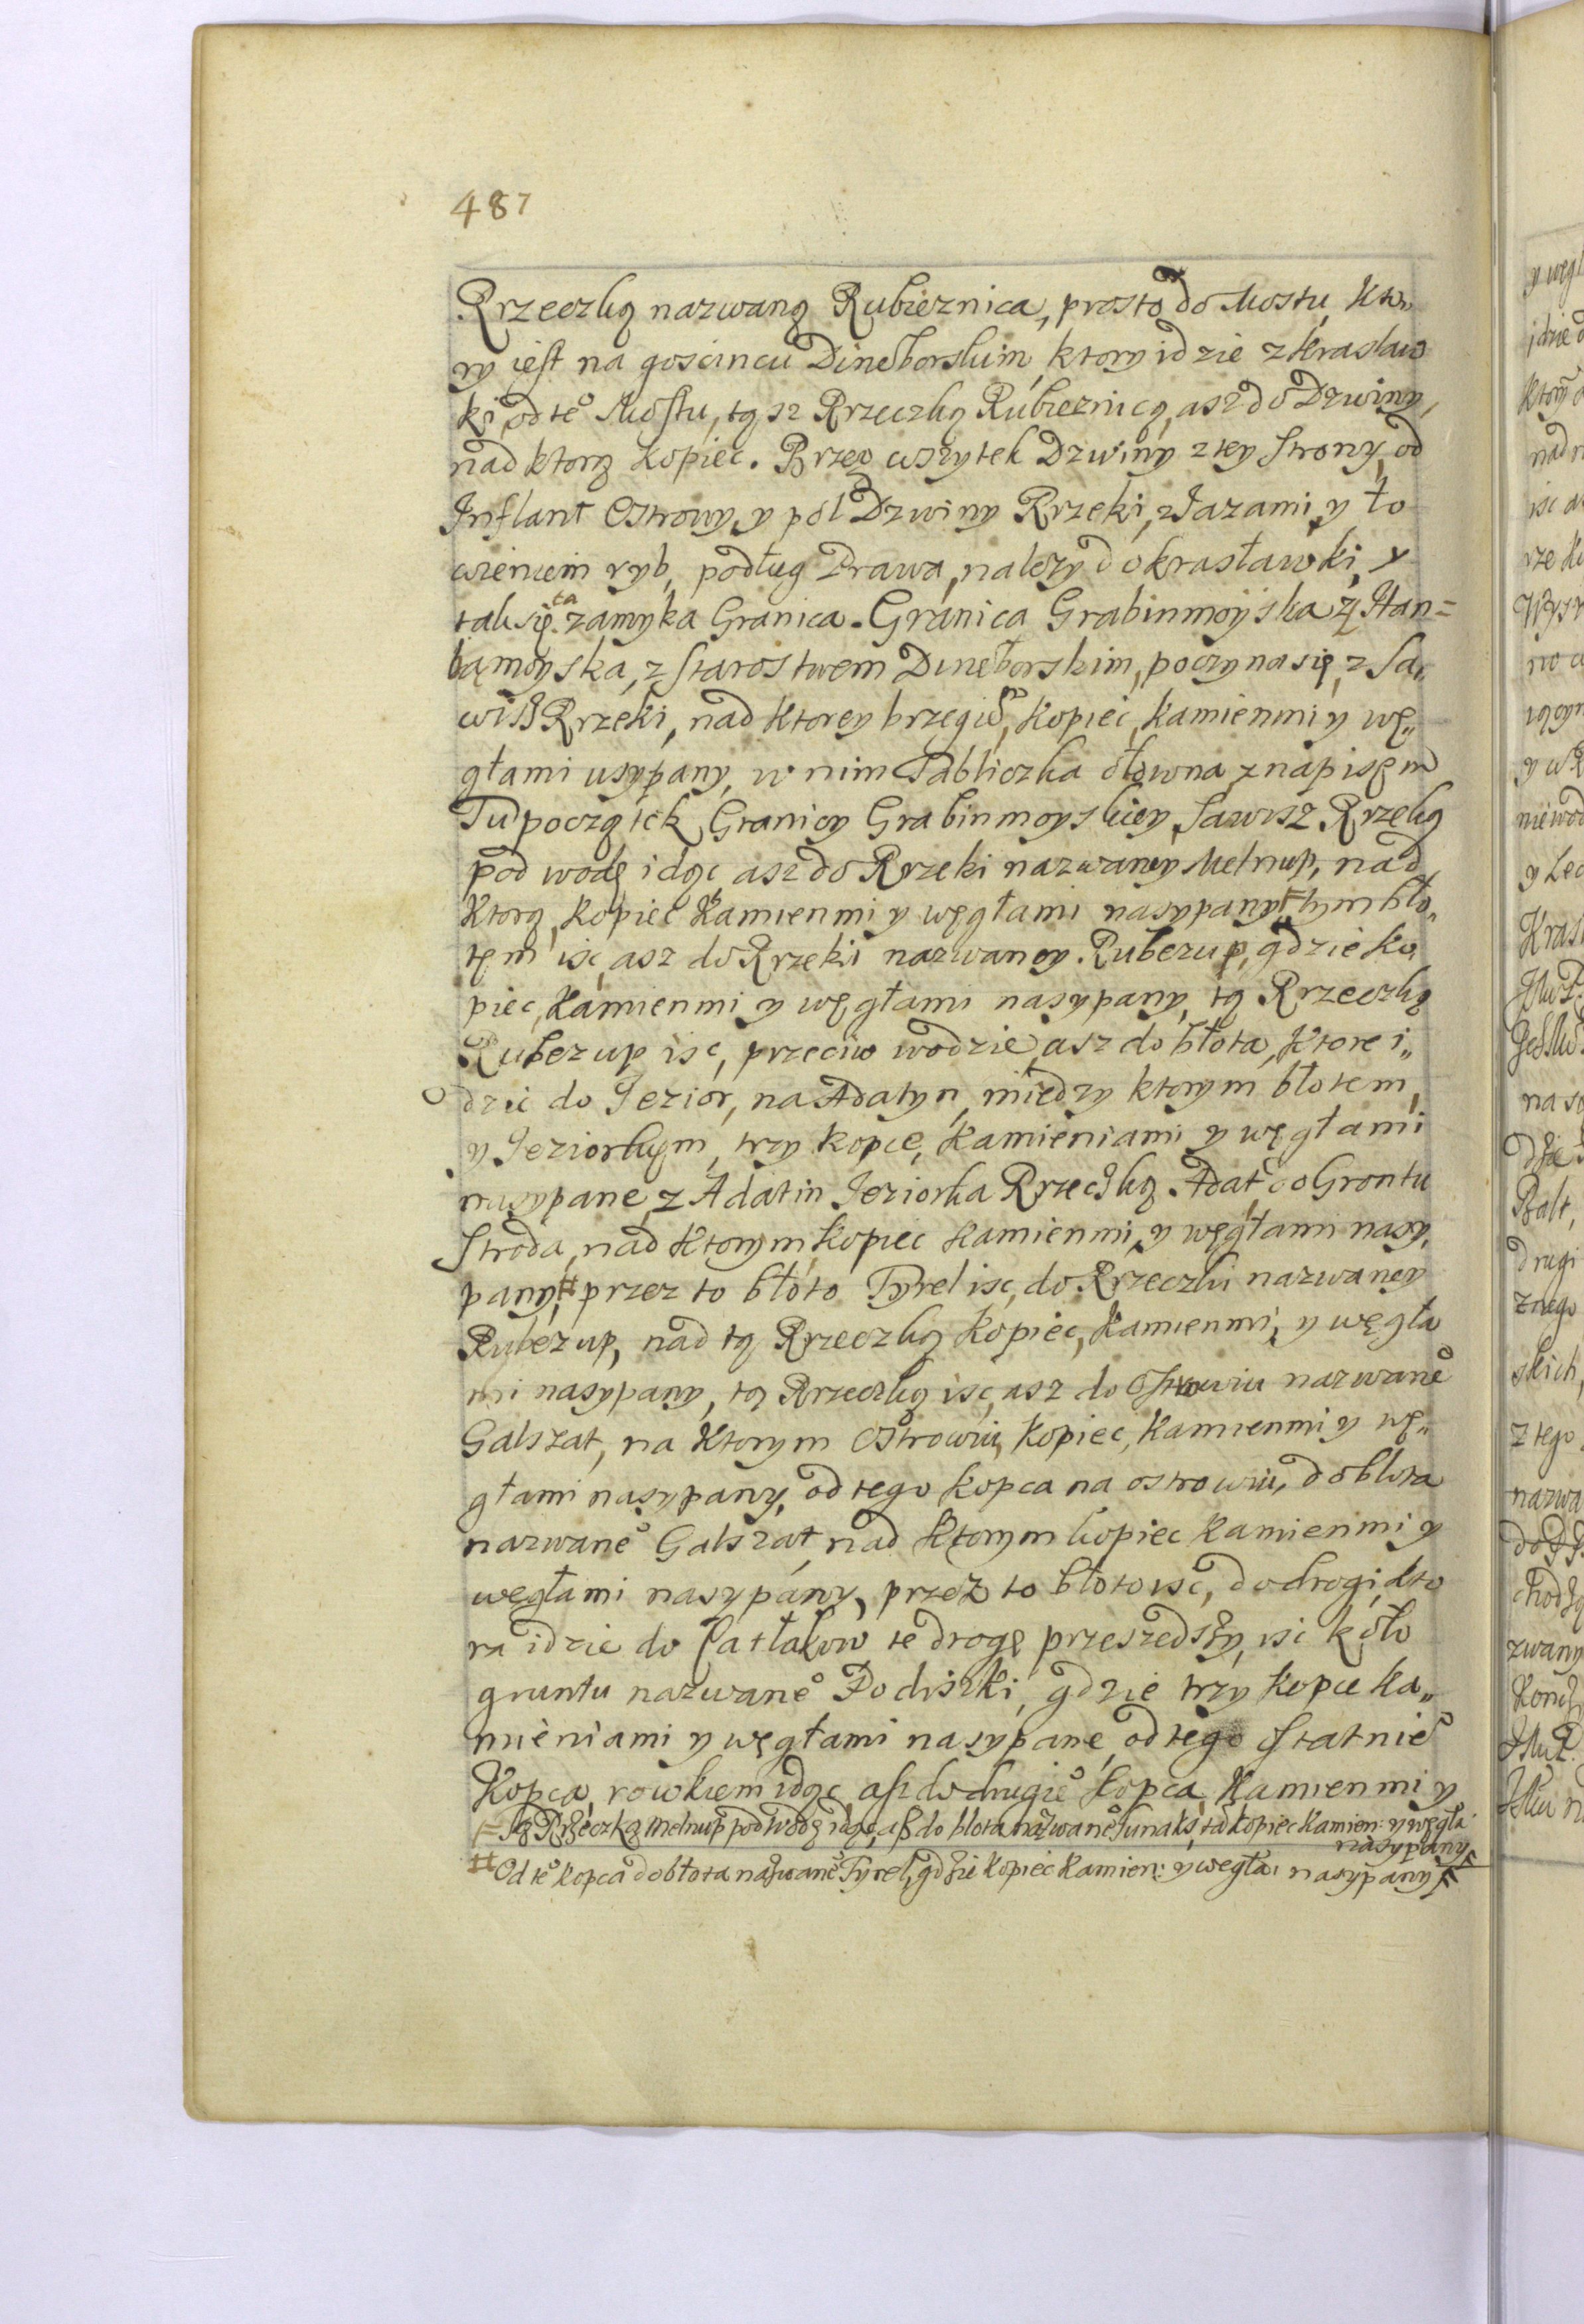 487
Rrzeczką nazwaną Rubieznica, prosto do Mostu, kto„
ry jest na gościncu Dineborskim, ktory idzie z Krasław
ki, od te° Mostu, tą sz Rrzeczką Rubieznicą, asz do Dzwiny,
nad ktorą kopiec. Brzeg wszytek Dzwiny z tey strony, od
Inflant Ostrowy, y poł Dzwiny Rrzeki, z Jazami, y ło
wieniem ryb, podług Prawa, nalezy do krasławki, y
tak się ta zamyka Granica. Granica Grabinmoyska z Han=
bąmoyska, z Starostwem Dineborskim, poczyna się, z Sa„
wisz Rrzeki, nad ktorey brzegiem, kopiec, kamienmi y wę„
głami usypany, w nim Tabliczka ołowna z napisem
Tu początek Granicy Grabinmoyskiey, Sawisz Rrzeką
pod wodę idąc, asz do Rrzeki nazwaney Melnup, nad
ktorą, kopiec kamienmi y węgłami nasypany, tym bło„
tem isc, asz do Rrzeki nazwaney Rubezup, gdzie ko
piec, kamienmi y węgłami nasypany, tą Rrzeczką
Rubezup isc, przeciw wodzie, asz do błota, ktore i„
dzie do Jezior, na Adatyn, między ktorym błotem,
y Jeziorkem, trzy kopce, kamieniami y węgłami
nasypane, z Adatin Jeziorka Rrzeczką Adat, do Grontu
Stroda, nad ktorym kopiec kamienmi, y węgłami nasy„
pany, # przez to błoto Tyrel isc, do Rrzeczki nazwaney
Rubezup, nad tą Rrzeczką kopiec, kamienmi, y węgła
mi nasypany, tą Rrzeczką isc, asz do Ostrowiu nazwane°
Galszat, na ktorym Ostrowiu, kopiec, kamienmi y wę„
głami nasypany, od tego kopca na ostrowiu, do błota
nazwane° Galszat, nad ktorym kopiec kamienmi y
węgłami nasypany, przez to błoto isc, do drogi, kto
ra idzie do Łatłakow te drogę przeszedszy, isc koło
gruntu nazwane° Podiszki, gdzie trzy kopce ka„
mieniami y węgłami nasypane, od tego ostatnie°
Kopca, rowkiem idąc asz do drugie° kopca, kamienmi y
Tą Rzeczką Melnup pod wodę idąc, asz do błota nazwane° Sunaks, tu kopiec kamien: y węgła:
nasypany
# Od te° kopca do błota nazwane° Tyrel, gdzie kopiec kamien: y węgła: nasypany